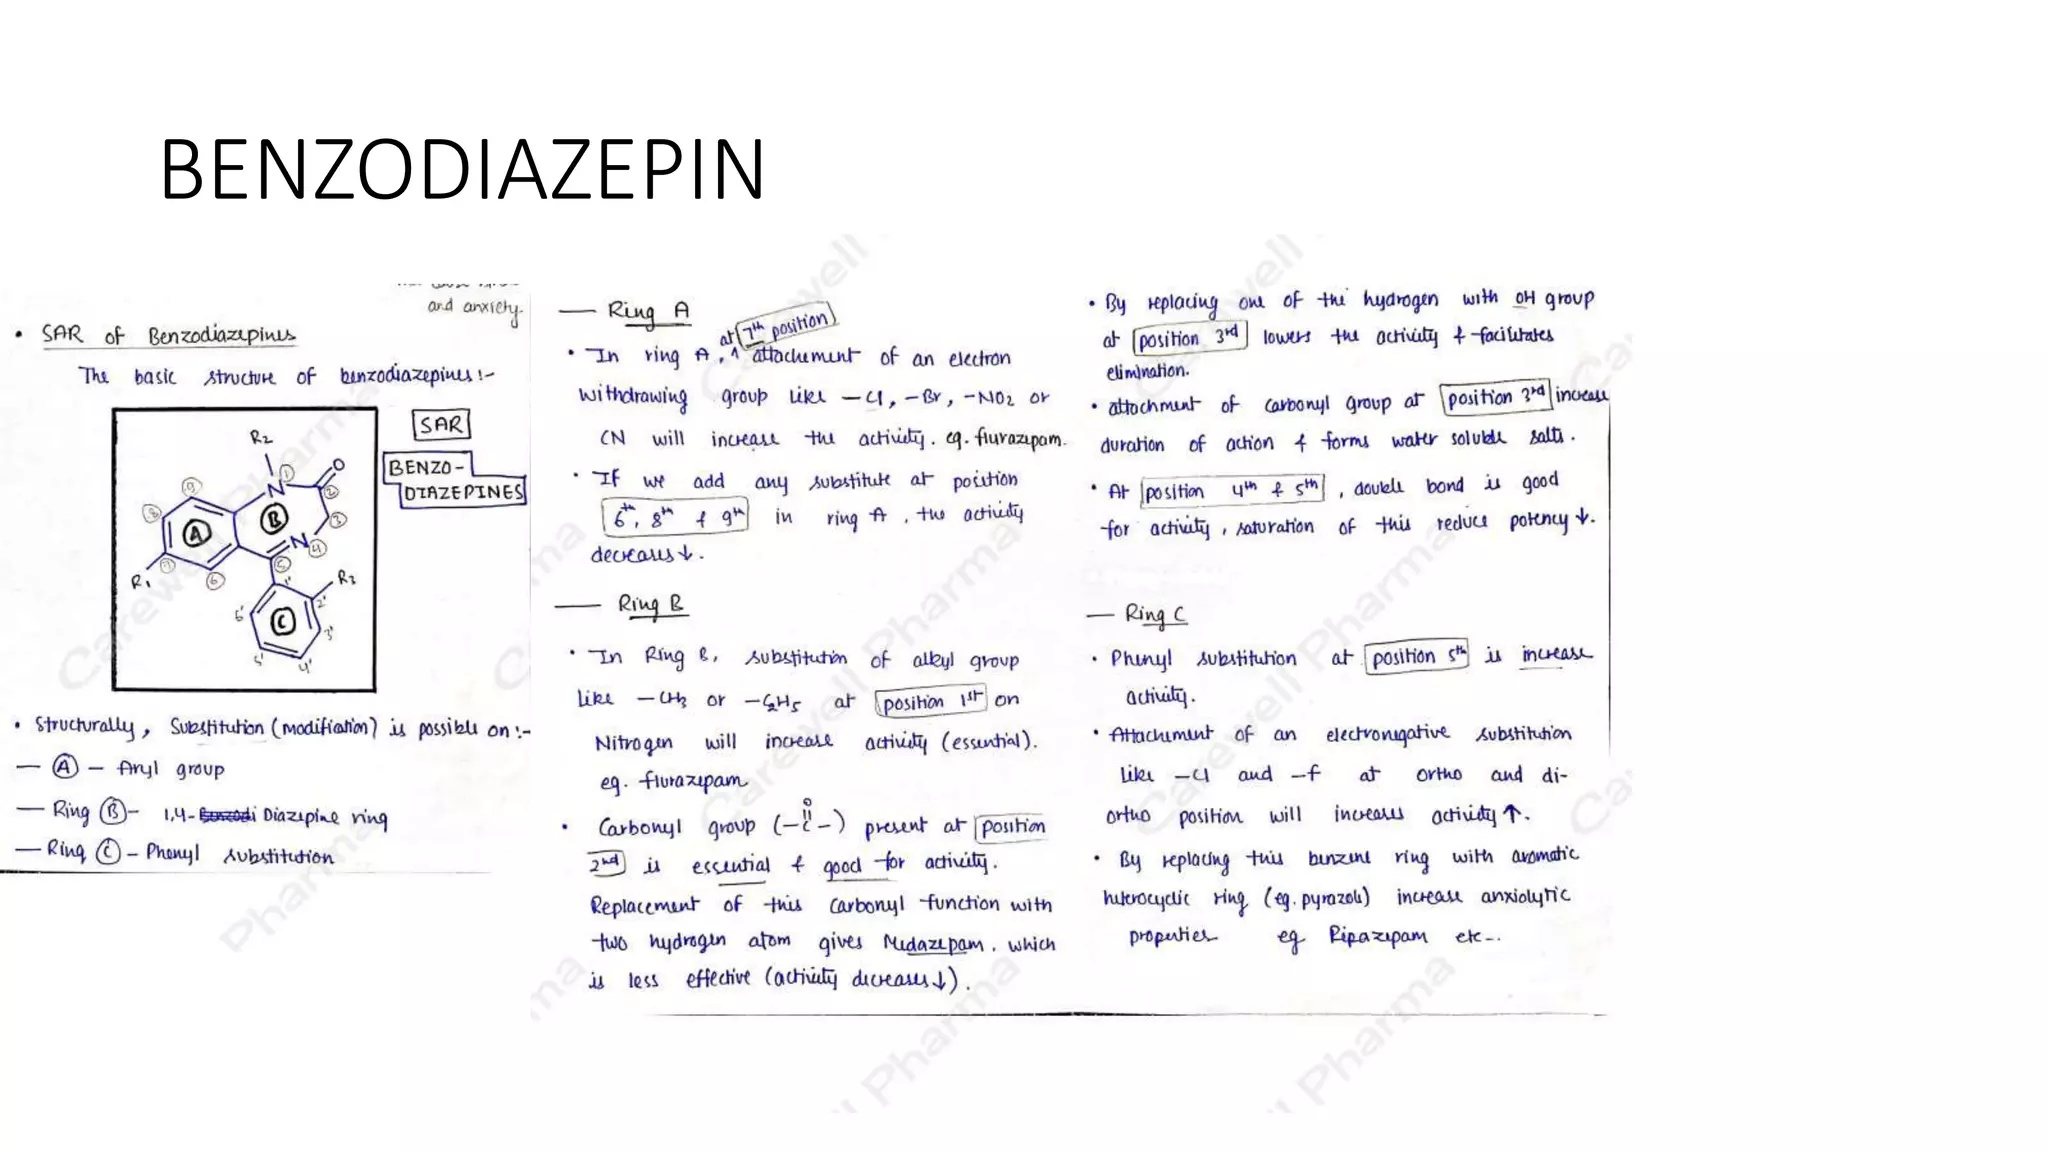 BENZODIAZEPIN
and anxiety.
• SAR of Benzodiazepines
The basic structure of benzodiazepines :-
SAR
BENZO-
DIAZEPINES
R2
N
1
O
2
3
N
4
5
6
7
8
9
A
B
C
R1
R3
1'
2'
3'
4'
5'
6'
• Structurally, Substitution (modification) is possible on :-
— A — Aryl group
— Ring B — 1,4- Diazepine ring
— Ring C — Phenyl substitution
— Ring A
at 7th position
• In ring A, ^ attachment of an electron
withdrawing group like —Cl, —Br, —NO2 or
CN will increase the activity. eg. flurazepam.
• If we add any substitute at position
6th, 8th & 9th in ring A, the activity
decreases ↓.
— Ring B
• In Ring B, substitution of alkyl group
like —CH3 or —C2H5 at position 1st on
Nitrogen will increase activity (essential).
eg. flurazepam
• Carbonyl group (—C—) present at position
O
2nd is essential & good for activity.
Replacement of this carbonyl function with
two hydrogen atom gives Medazepam, which
is less effective (activity decreases ↓).
• By replacing one of the hydrogen with OH group
at position 3rd lowers the activity & facilitates
elimination.
• attachment of carbonyl group at position 3rd increase
duration of action & forms water soluble salts.
• At position 4th & 5th, double bond is good
for activity, saturation of this reduce potency ↓.
— Ring C
• Phenyl substitution at position 5th is increase
activity.
• Attachment of an electronegative substitution
like —Cl and —f at ortho and di-
ortho position will increases activity ↑.
• By replacing this benzene ring with aromatic
heterocyclic ring (eg. pyrazole) increase anxiolytic
properties eg Ripazepam etc--.
Carewell Pharma